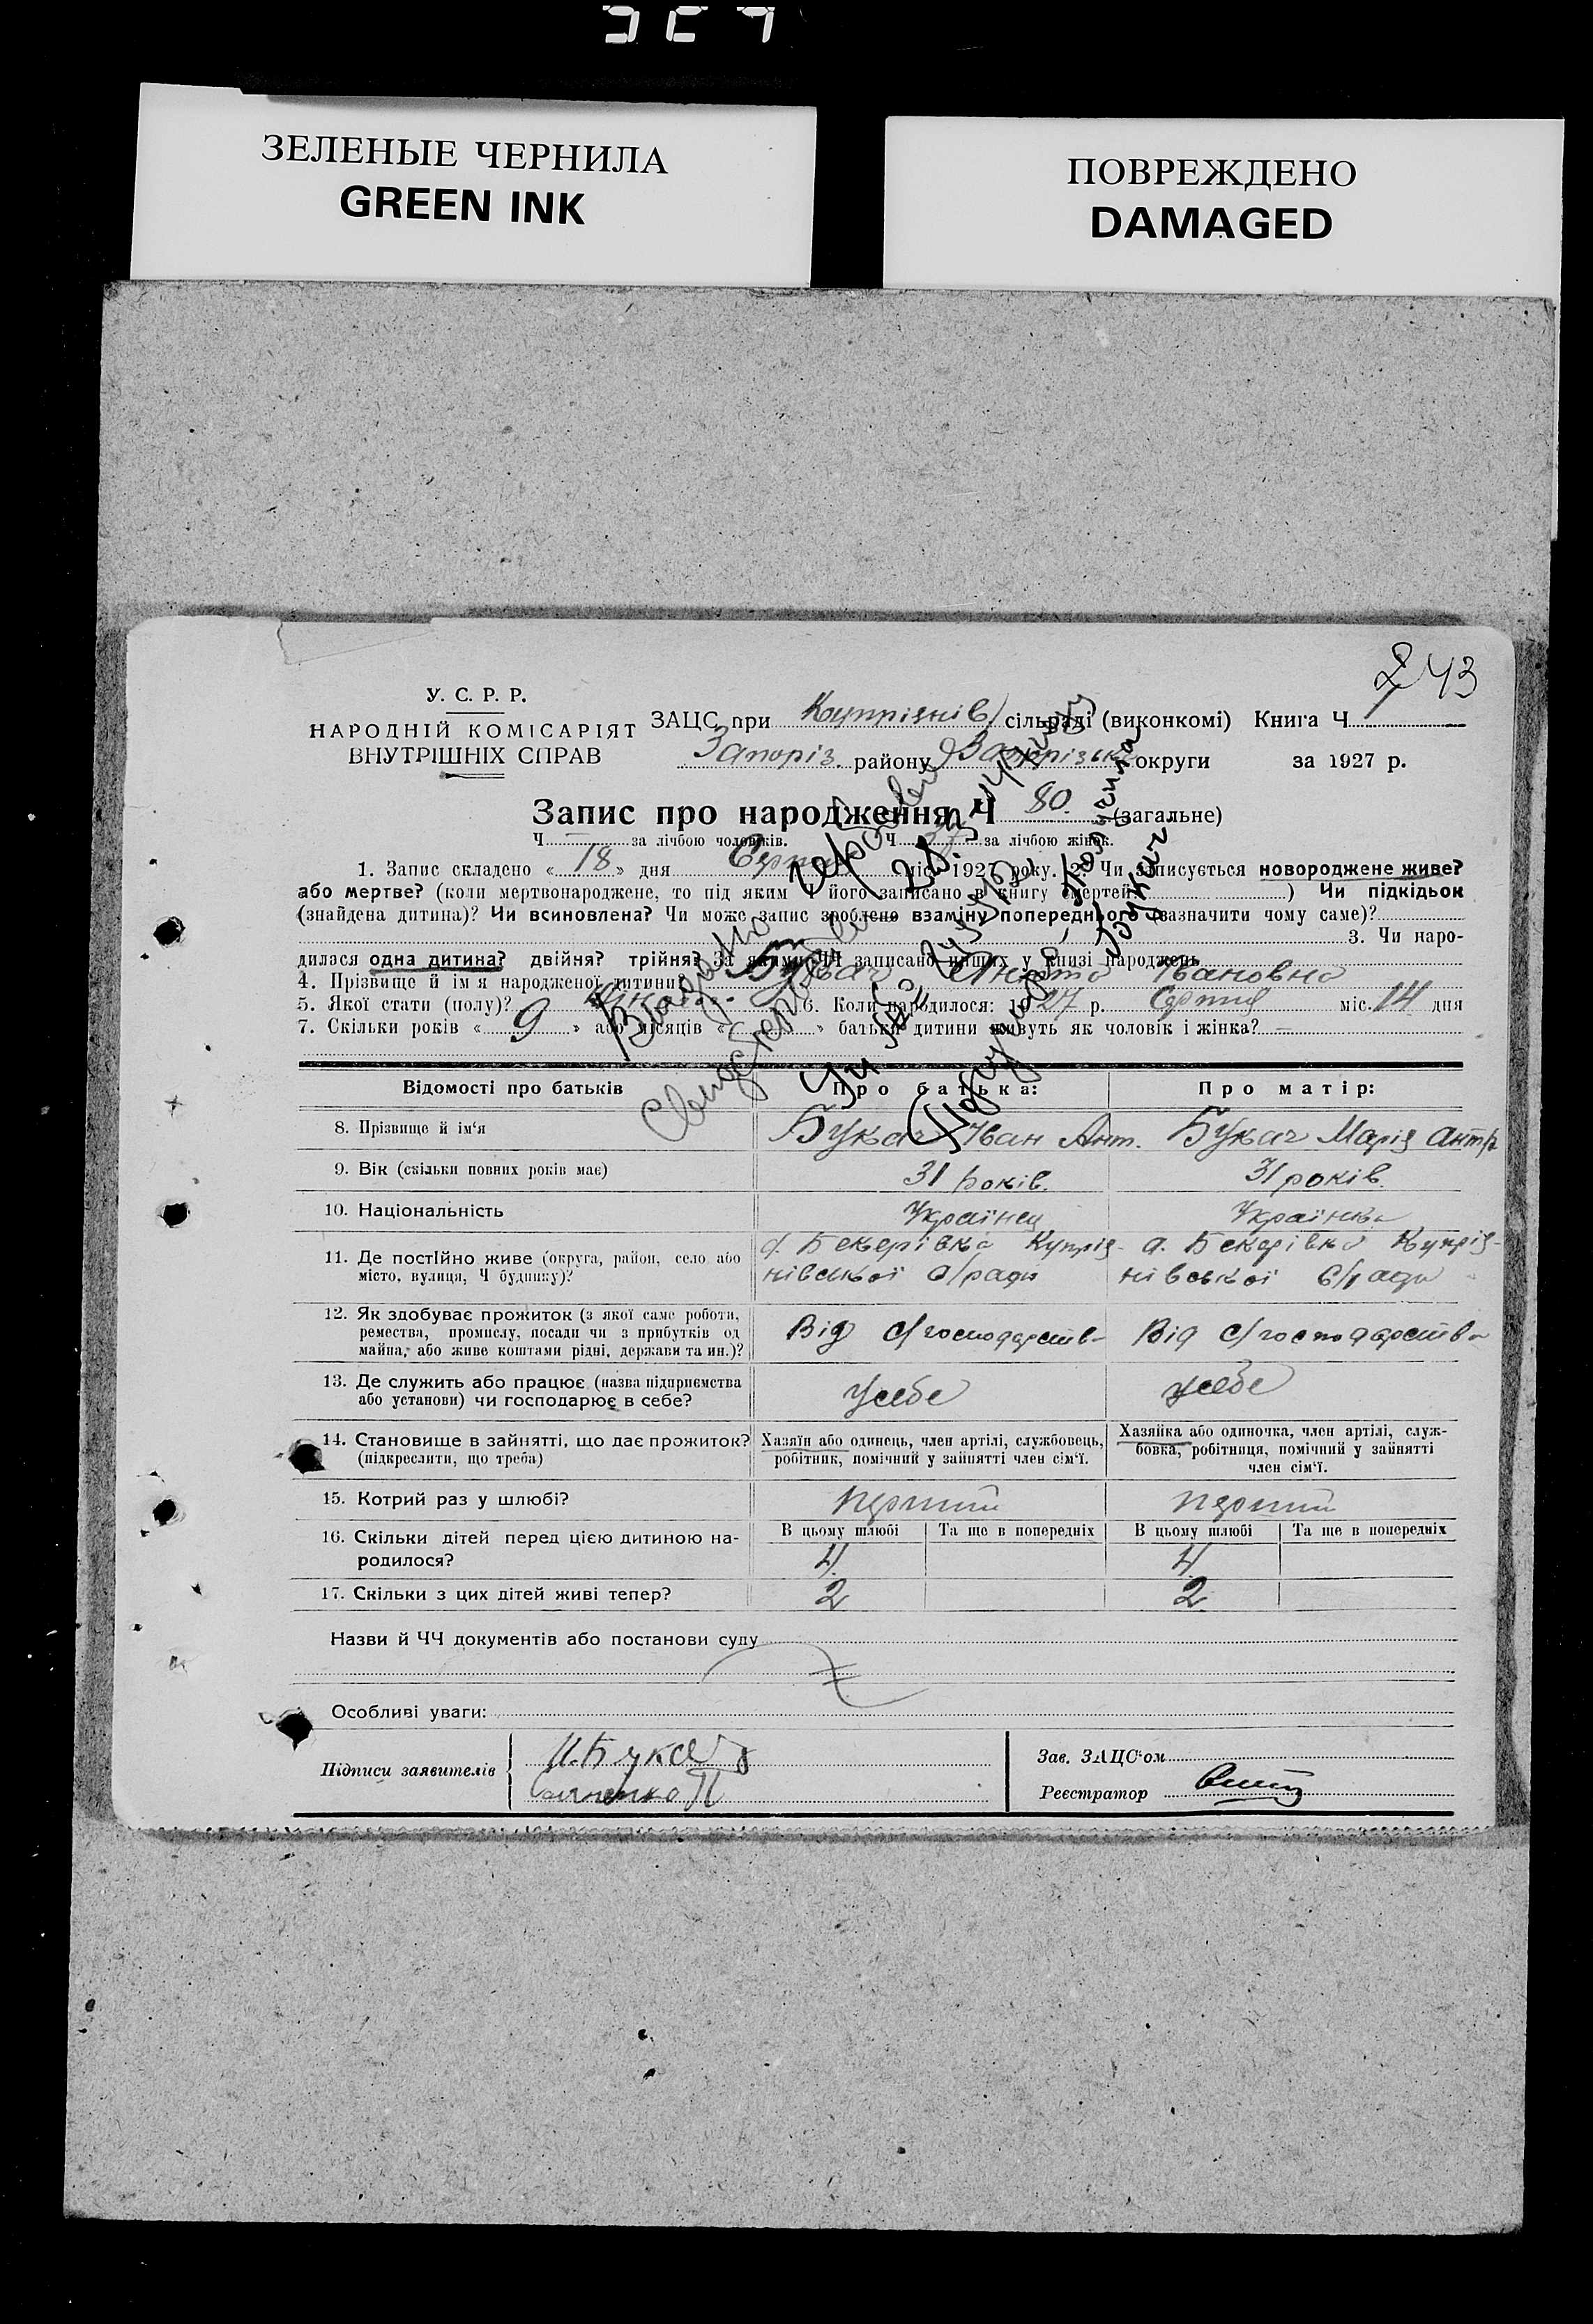 ЗЕЛЕНЫЕ ЧЕРНИЛА
GREEN INK
ПОВРЕЖДЕНО
DAMAGED
243
У. С. Р. Р.
НАРОДНІЙ КОМІСАРІЯТ
ВНУТРІШНІХ СПРАВ
ЗАЦС при Купріянів/ сільраді (виконкомі) Книга Ч
Запоріз. району Запорізьк округи за 1927 р.
Запис про народження Ч 80. (загальне)
Ч — за лічбою чоловіків. Ч 37 за лічбою жінок.
1. Запис складено « 18 » дня Серпня міс. 1927 року. 2. Чи записується новороджене живе?
або мертве? (коли мертвонароджене, то під яким Ч його записано в книгу смертей ) Чи підкідьок
(знайдена дитина)? Чи всиновлена? Чи може запис зроблено взаміну попереднього (зазначити чому саме)?
3. Чи наро-
дилася одна дитина? двійня? трійня? За якими ЧЧ записано инших у книзі народжень
4. Прізвище й ім'я народженої дитини Букач Анюта Івановна
5. Якої стати (полу)? 6. Коли народилося: 1927 р. Серпня міс. 14 дня
7. Скільки років « 9 » або місяців « » батьки дитини живуть як чоловік і жінка? —
Видано
Букач
Відомості про батьків Про батька: Про матір:
8. Прізвище й ім‘я Букач Іван Ант. Букач Марія Антр
9. Вік (скільки повних років має) 31 років. 31 років.
10. Національність Українец Українка
11. Де постійно живе (округа, район, село або с. Бекерівка Купрія- с. Бекарівка Купрія-
місто, вулиця, Ч будинку)? нівської с/ради нівської с/ради
12. Як здобуває прожиток (з якої саме роботи,
ремества, промислу, посади чи з прибутків од Від с/господарства Від с/господарства
майна, або живе коштами рідні, держави та ин.)?
13. Де служить або працює (назва підприємства усебе усебе
або установи) чи господарює в себе?
14. Становище в зайнятті, що дає прожиток? Хазяїн або одинець, член артілі, службовець, Хазяйка або одиночка, член артілі, служ-
(підкреслити, що треба) робітник, помічний у зайнятті член сім‘ї. бовка, робітниця, помічний у зайнятті
член сім‘ї.
15. Котрий раз у шлюбі? перший перший
16. Скільки дітей перед цією дитиною на- В цьому шлюбі Та ще в попередніх В цьому шлюбі Та ще в попередніх
родилося? 4 4
17. Скільки з цих дітей живі тепер? 2 2
Назви й ЧЧ документів або постанови суду
Особливі уваги:
Підписи заявителів И. Букач Зав. ЗАЦС‘ом
Реєстратор